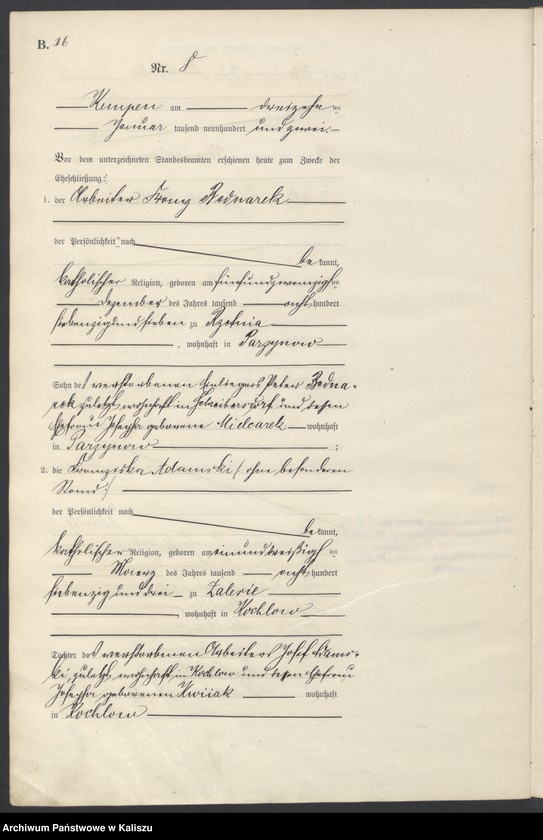 B. 16
Nr. 8
Kempen am dreizehn ten
Januar tausend neunhundert und zwei
Vor dem unterzeichneten Standesbeamten erschienen heute zum Zwecke der
Eheschließung:
1. der Arbeiter Franz Bednarek
der Persönlichkeit nach
be kannt,
katholischer Religion, geboren am fünfundzwanzigsten
Dezember des Jahres tausend acht hundert
siebenzig und sieben zu Rzetnia
, wohnhaft in Parzynow
Sohn des verstorbenen Einliegers Peter Bedna-
rek zuletzt wohnhaft in Schreibersdorf und dessen
Ehefrau Josepha geborene Mielcarek wohnhaft
in Parzynow ;
2. die Franziska Adamski (ohne besonderen
Stand)
der Persönlichkeit nach
be kannt,
katholischer Religion, geboren am einunddreißigsten
März des Jahres tausend acht hundert
siebenzig und drei zu
, wohnhaft in Kochlow
Tochter des verstorbenen Arbeiters Josef Adams-
ki, zuletzt wohnhaft in Kochlow und dessen Ehefrau
Josepha geborenen wohnhaft
in Kochlow
Archiwum Państwowe w Kaliszu